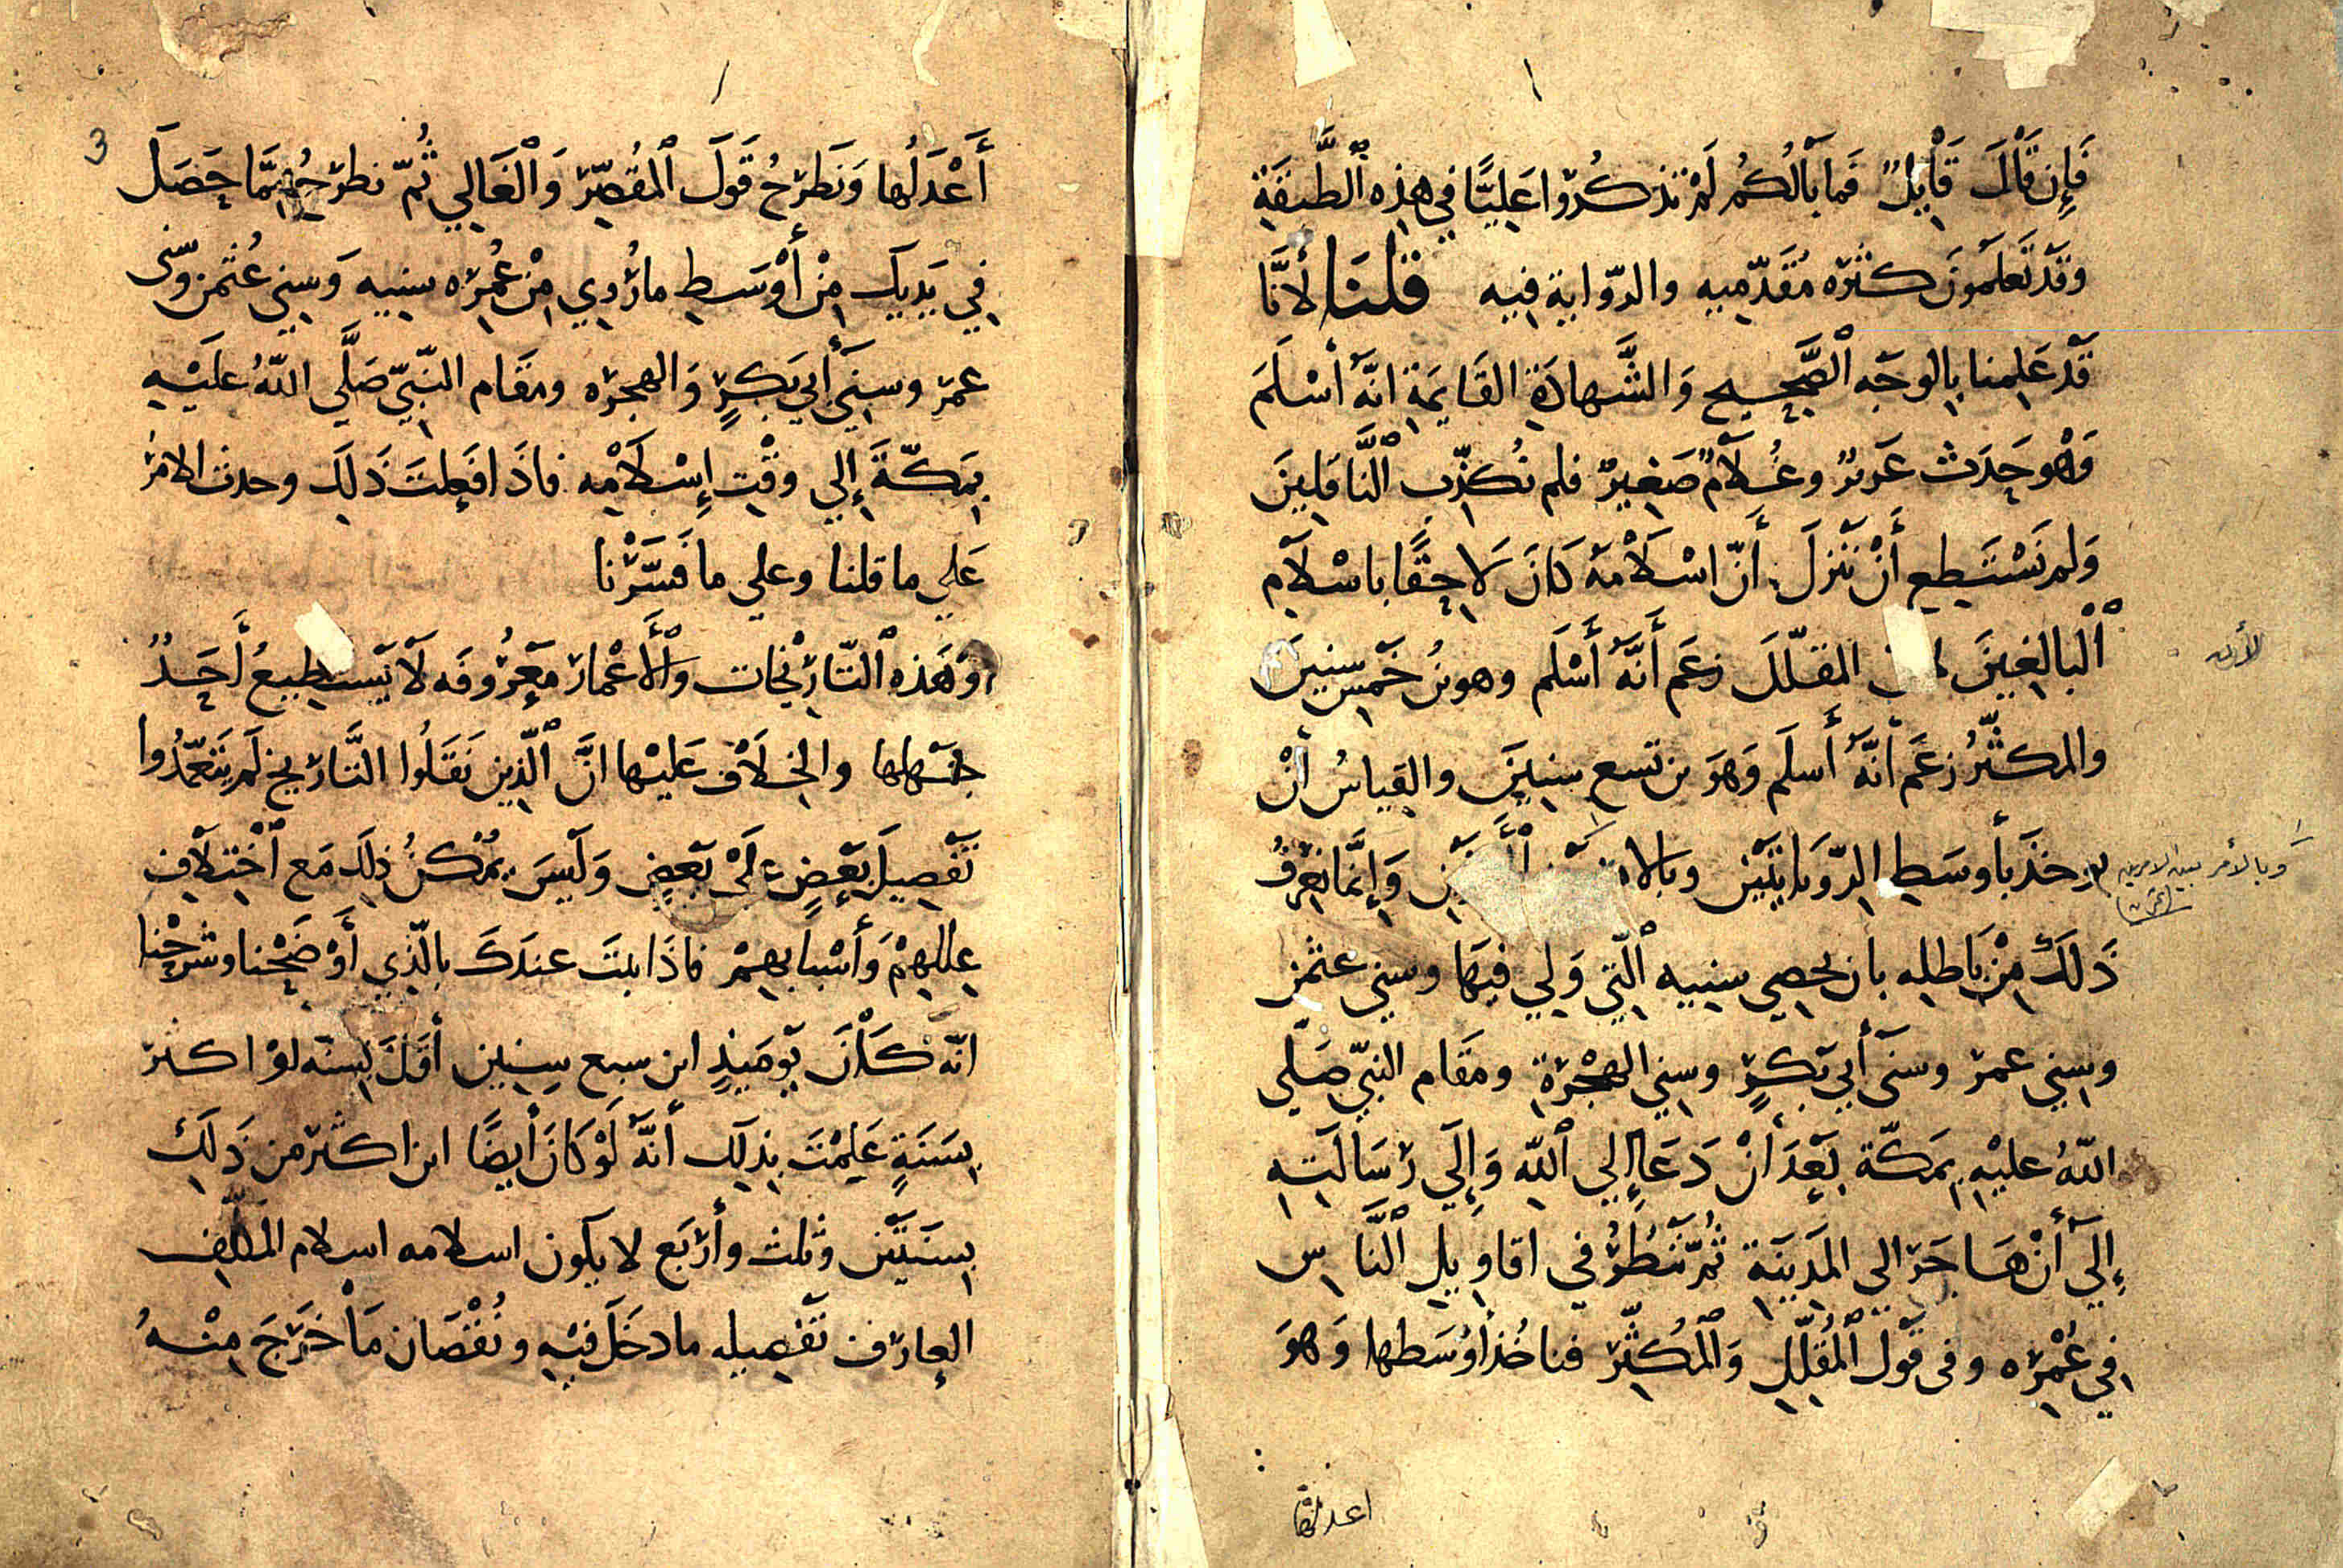 فَإِن قَالَ قَايِلٌ فَما بَالُكُم لَمْ تذكُروا عَلِيًّا في هذِه ٱلطَّبَقَةِ
وقَدْ تَعلَمونَ كثرَه مُقَدِّميه والرّوايةِ فيه قلنَا لأنَّا
قَدْ عَلِمنا بِالوجَهِ ٱلصَّحِيحِ وَالشَّهادَةِ القَايمَةِ انَّهُ أسْلَمَ
وَهْو حَدَث غَرِيرٌ وغُلَامٌ صَغِيرٌ فلم نُكَذِّبِ ٱلنَّاقِلِينَ
وَلم نَسْتَطِيع أَنْ نَنزلَ أَنّ اسْلَامَهُ كَانَ لَاحِقًا باسْلَامِ
ٱلْبالِغِينَ المقلّلَ زعَم أَنَّهُ أَسْلَم وهو بنُ خَمْسِ سِنِينَ
لأن
والمكثّرُ زعَم أنَّهُ أَسلَم وَهوَ بن تسعِ سنِينَ والقِياسُ أنْ
يوخَذَ بأوسَطِ الرّوَايَتَيْنِ وبالا وَإنَّما نعْرِفُ
وبالأمر بين الامرين
ذَلكَ مِنْ بَاطلِه بان نحصِي سنِيه ٱلّتِي وَلِي فيَها وسنِي عثمن
وسِنِي عمر وسنَى أبِي بَكرٍ وسِنِي الهجْرةِ ومَقَام النبّيِ صَلّي
اللّهُ عليْهِ بمَكّة بَعْدَ أنْ دَعَا إلي ٱللّهِ وَإِلَي رسَالَتِهِ
إلَي أنْ هَاجَر الى المَدينَةِ ثُمّ نَنْظُرُ في اقاوِيلِ ٱلنَّاسِ
في عُمْرِه وفى قَولِ ٱلْمُقَلِّلِ وَٱلْمُكثِّرِ فناخُذُ أوْسَطها وَهوَ
اعدلها
3
أَعْدَلُها وَنَطرَحُ قَولَ ٱلمُقَصِّرِ وَٱلْغَالِي ثُمّ نطرَحُ مِمَّا حَصَلَ
فِي يَدِيكَ مِنْ أَوْسَطِ ما رُوِي مِنْ عُمرِه سنِيه وَسِنِي عُثمن وسِنى
عمر وسِنِي أَبِي بَكرٍ وَالهجرَه ومقَام النّبيّ صَلَّي اللّهُ علَيْهِ
بِمَكّةَ إِلي وقْتِ إِسْلَامِه فاذَا فَعلتَ ذَلِكَ وحدت الامرَ
عَلي ما قلنا وعلي ما فَسَّرْنا
وَهَذه ٱلتّارِيْخَات وَٱلأَعْمار مَعرُوفَه لَا يَسْتطِيعُ أَحَدٌ
جَهْلها والخِلَافَ عَليْها انَّ ٱلّذِين نَقَلُوا التَّاريخ لَم يَتَعَّدُوا
تَفْصِيلَ بَعْضٍ عَلَى بَعْضٍ وَلَيسَ يُمْكنُ ذلِكَ مَع ٱخْتِلَافِ
عِللهِمْ وَأَسْبابِهِمْ فاذَا ثبتَ عندَكَ بالّذِي أَوْضَحْنا وشَرَحْنا
انّهُ كَانَ يَومَيذٍ ابن سبع سِنِين أقَلَّ بسنَه لوْ اكثر
بِسَنَةٍ عَلِمْتَ بذلِكَ أنَّهُ لَوْ كَانَ أيضًا ابن اكثر من ذَلكَ
بِسنَتَيْنِ وثلث وأربَع لا يكون اسلامه اسلام المكلّف
العارِف تَفْصِيله ما دخَلَ فيْهِ ونُقْصَان مَا خَرَجَ مِنْهُ